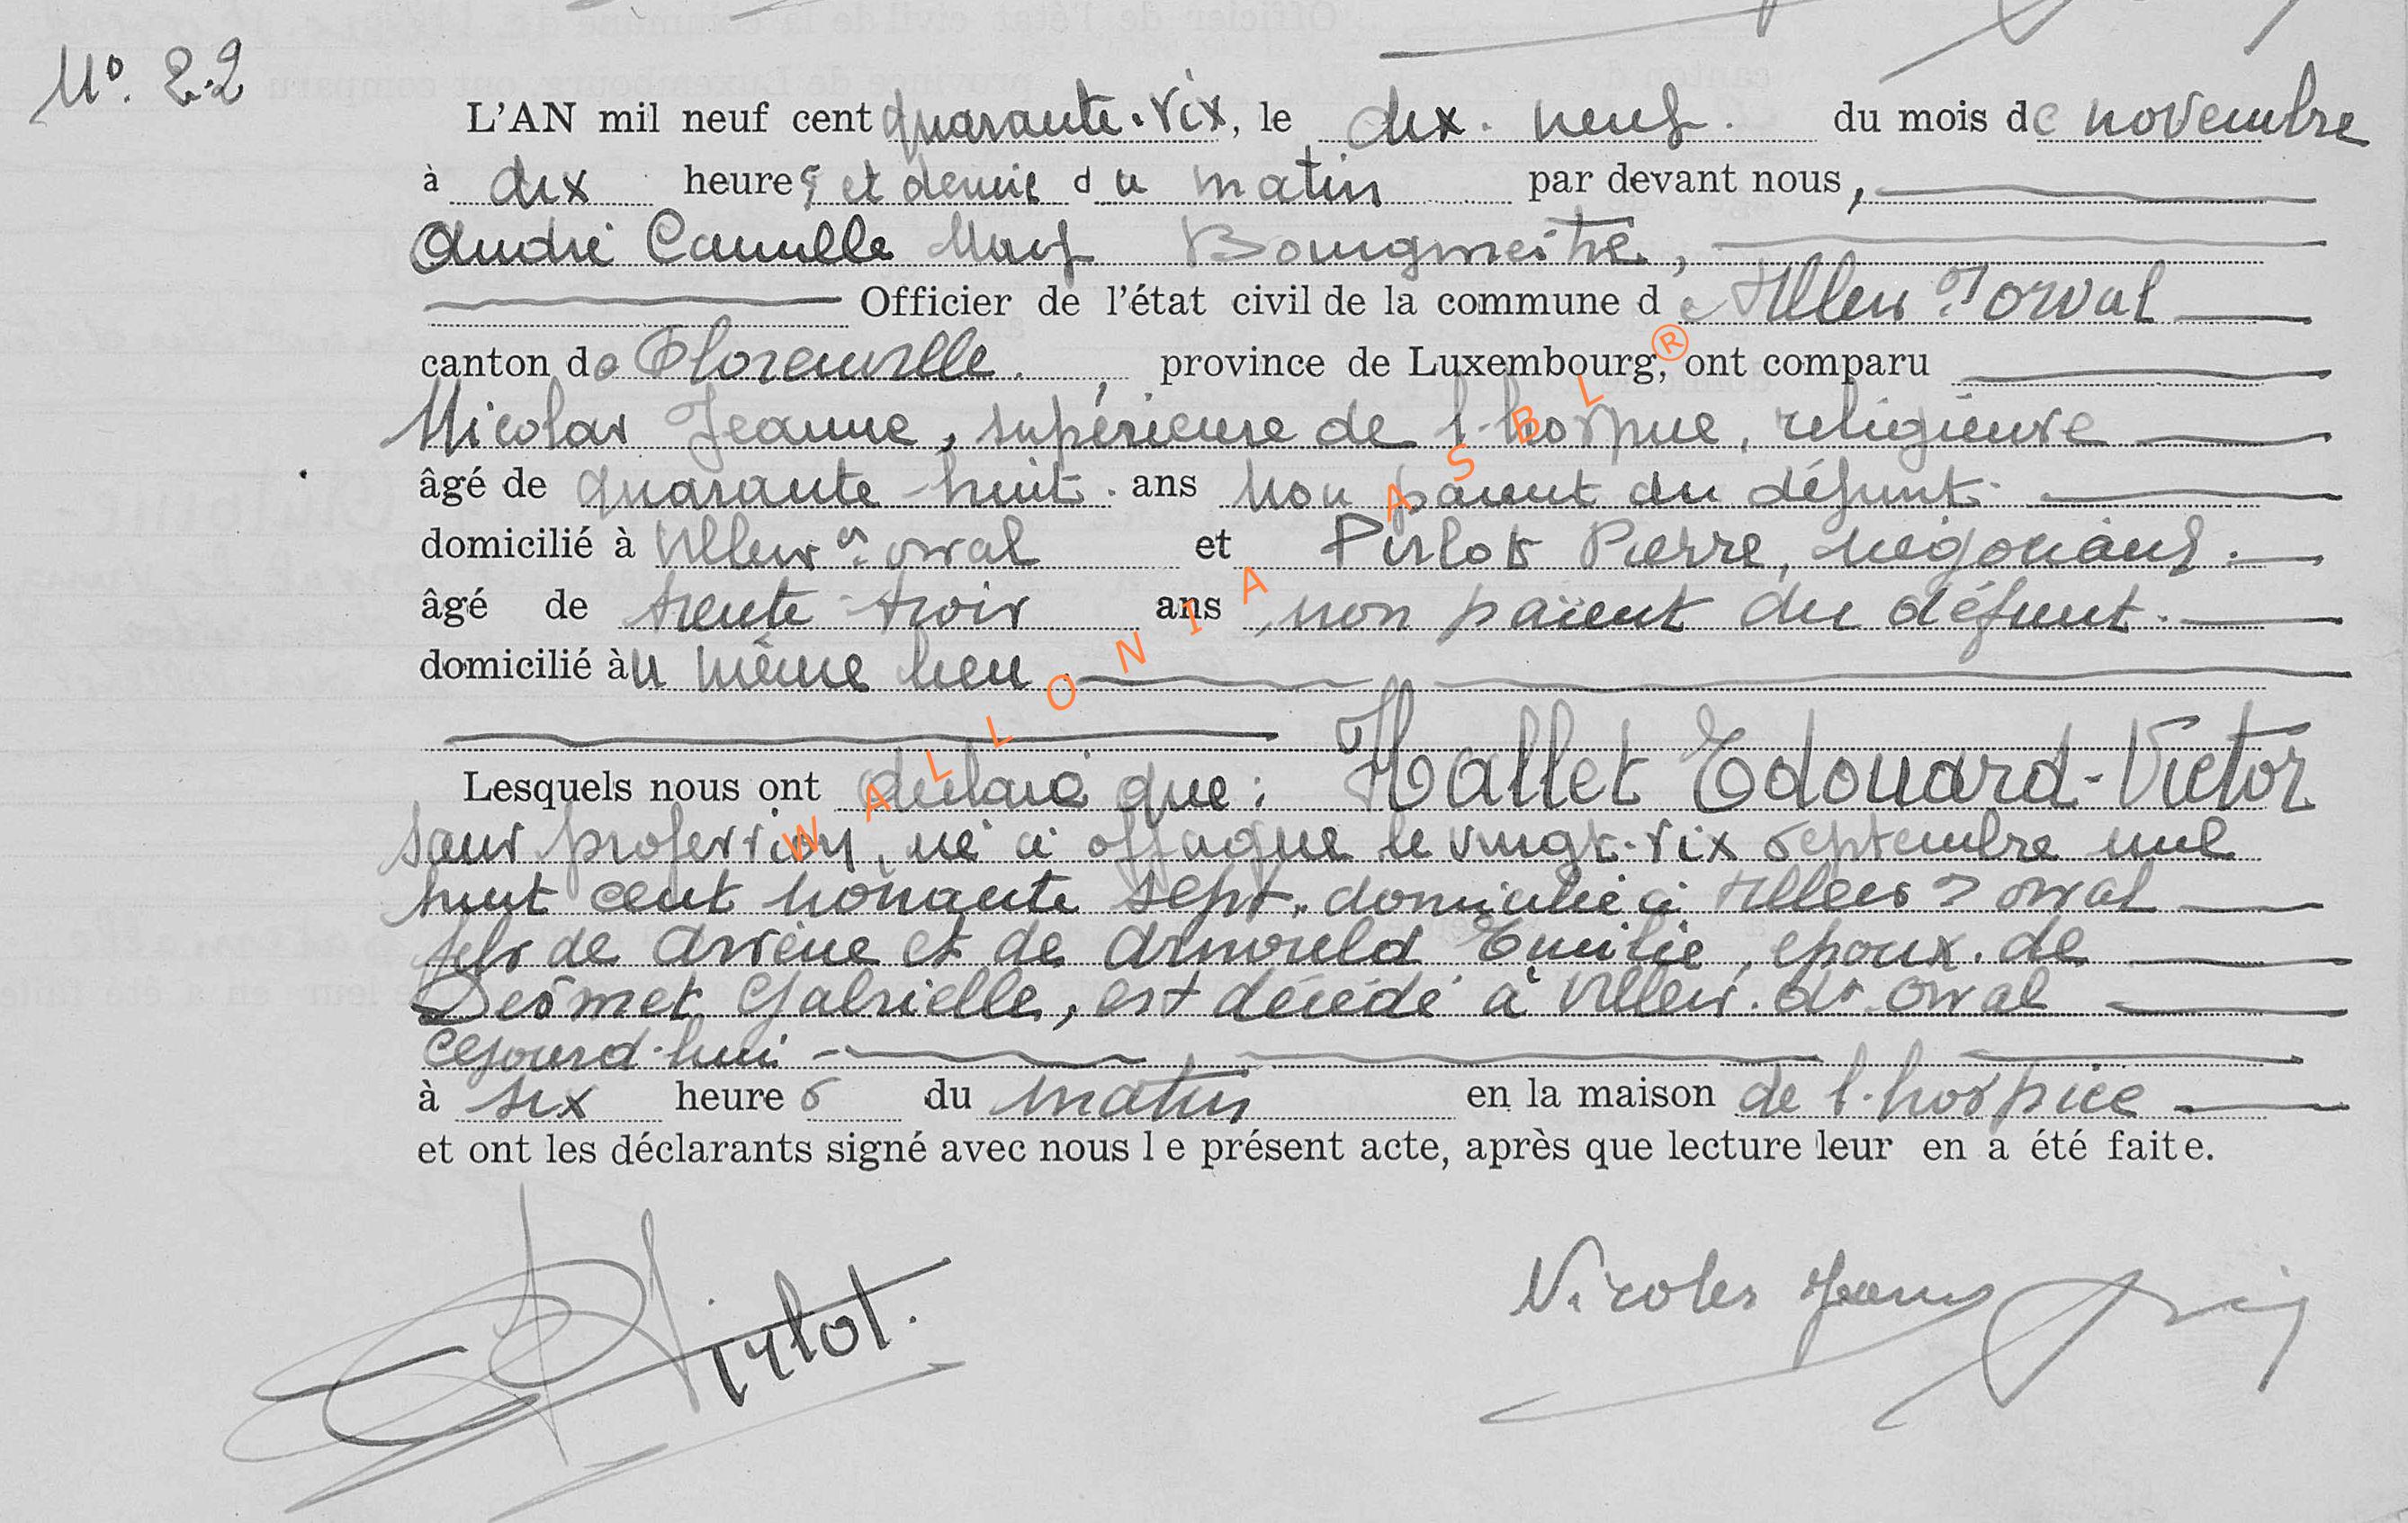 N° 22
L'AN mil neuf cent quarante-six, le dix-neuf du mois de novembre
à dix heures et demie du matin par devant nous,
André Camille Bourgmestre,
Officier de l'état civil de la commune de Villers dt orval
canton de Florenville, province de Luxembourg, ont comparu
Nicolas Jeanne, supérieure de l'hospice, religieuse
âgé de quarante-huit ans non parent du défunt
domicilié à Villers dt orval et Pirlot Pierre, négociant.
âgé de trente-trois ans, non parent du défunt.
domicilié àu même lieu
Lesquels nous ont déclaré que : Hallet Edouard-Victor
sans profession, né à offagne le vingt-six septembre mil
huit cent nonante sept, domicilié à Villers dt orval
fils de Arsène et de Arnould Emilie, époux de
Desmet Gabrielle, est décédé à Villers dt Orval
cejourd'hui
à six heures du matin en la maison de l'hospice
et ont les déclarants signé avec nous le présent acte, après que lecture leur en a été faite.
Pirlot. Nicolas Jeanne
WALLONIA ASBL ®